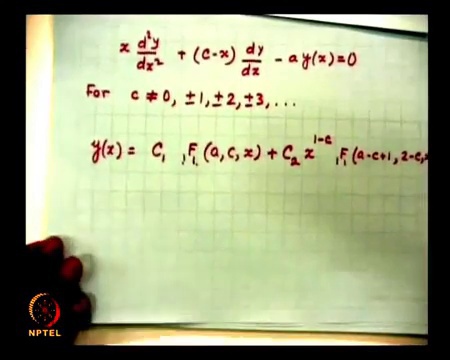 x d²y/dx² + (c-x) dy/dx - a y(x) = 0
For c ≠ 0, ±1, ±2, ±3, ...
y(x) = C₁ ₁F₁(a, c, x) + C₂ x^{1-c} ₁F₁(a-c+1, 2-c,
NPTEL